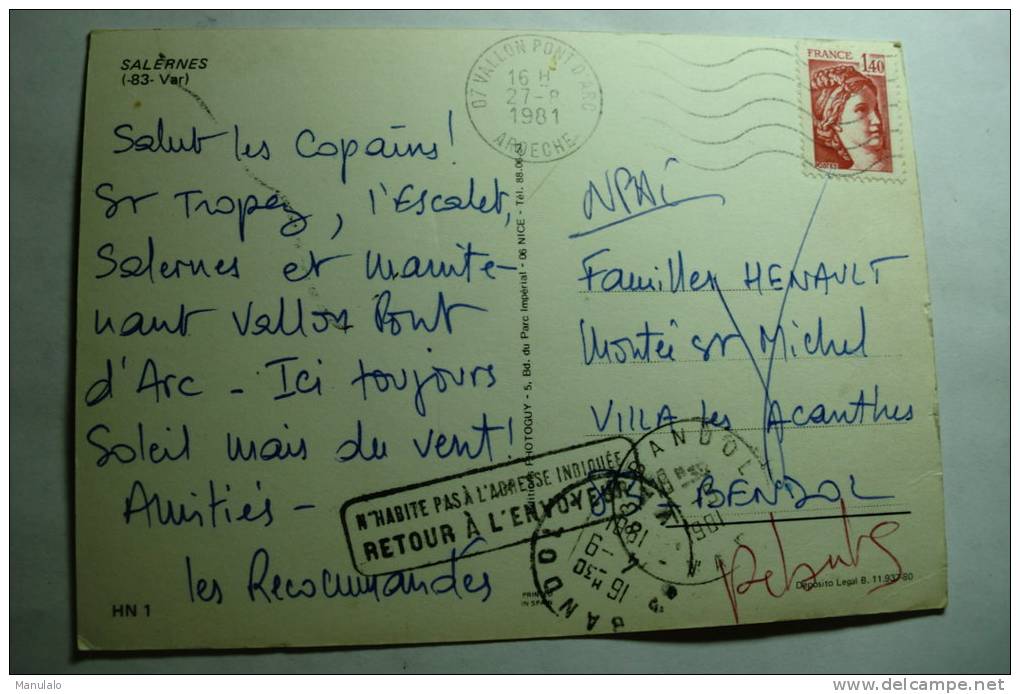 SALERNES
(-83- Var)
Salut les Copains!
St Tropez, l'Escalet,
Salernes et mainte-
nant Vallon Pont
d'Arc - Ici toujours
Soleil mais du vent!
Amitiés -
les Recommandés
HN 1
PHOTOGUY - 5, Bd. du Parc Impérial - 06 NICE - Tél. 88.06
PRINTED
IN SPAIN
07 VALLON PONT D'ARC
16 H
27-8
1981
ARDECHE
FRANCE
1,40
NPAI
Familles HENAULT
Montée St Michel
VILLA les Acanthes
83 BENDOL
N'HABITE PAS À L'ADRESSE INDIQUÉE
RETOUR À L'ENVOYEUR
BANDOL
BANDOL
16 H30
1981
Deposito Legal B. 11.937-80
Manulalo
www.delcampe.net